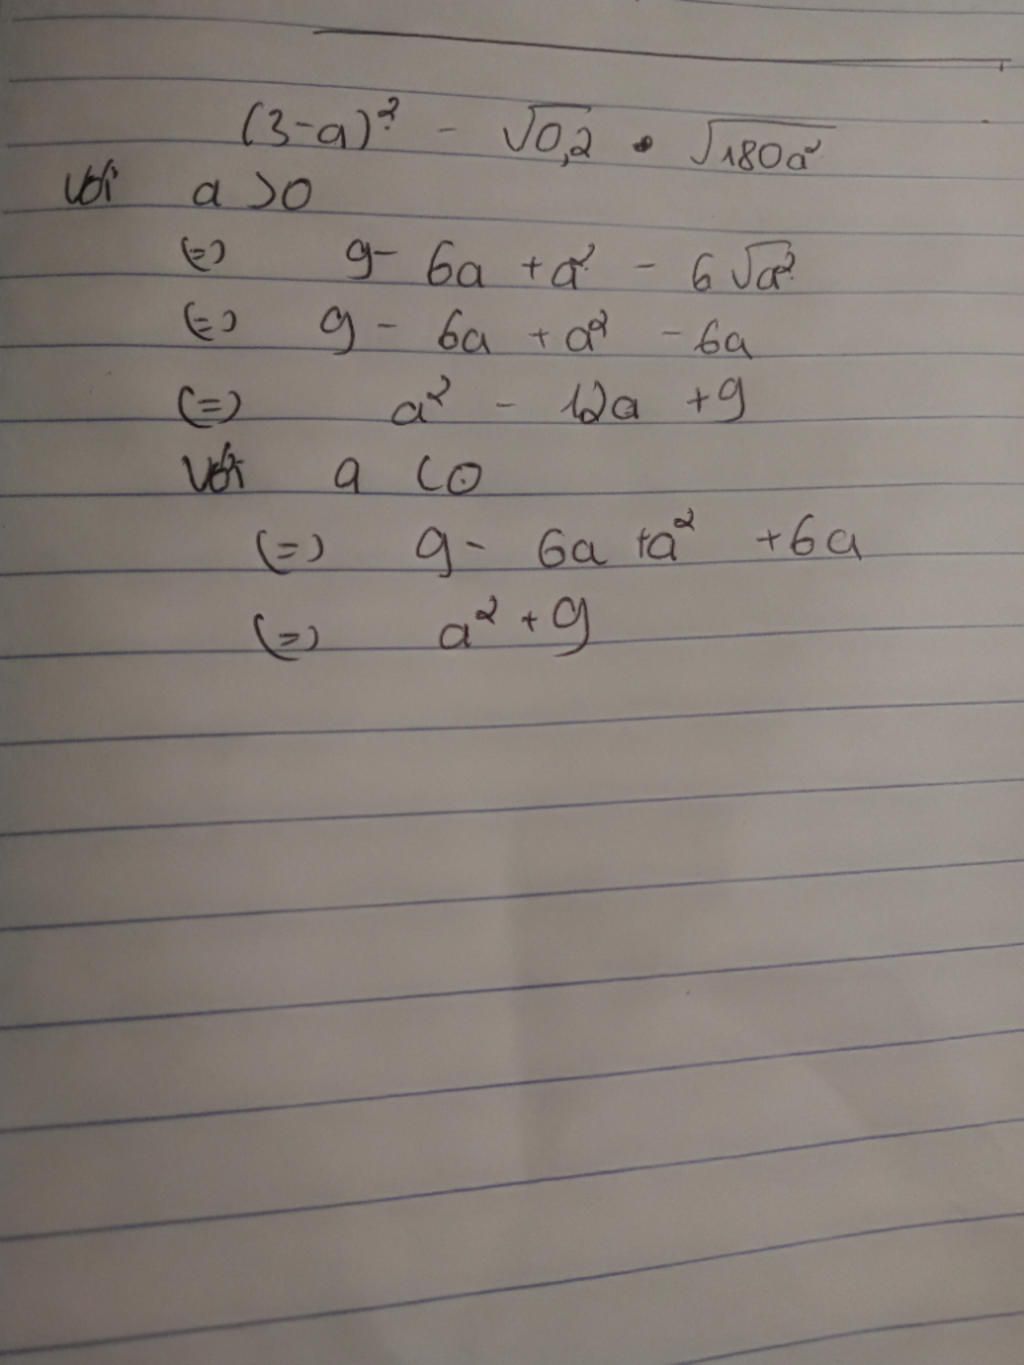 (3-a)² - √0,2 • √180a²
Với a >0
(=) 9- 6a + a² - 6√a²
(=) 9 - 6a + a² - 6a
(=) a² - 12a + 9
Với a <0
(=) 9 - 6a +a² + 6a
(=) a² + 9